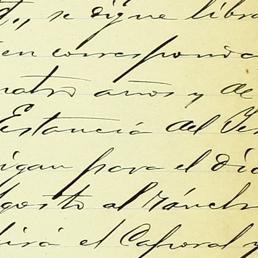 se digne libra
en corresponda
uatro años y de
Estancia del
igan para el dia
Agosto al Ranch
dirá el Caporal y